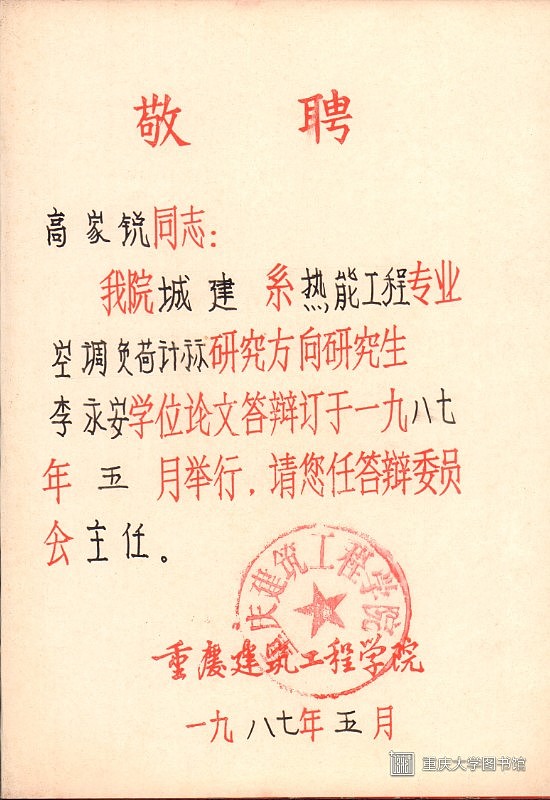 敬聘
高家锐同志：
我院城建系热能工程专业
空调负荷计标研究方向研究生
李永安学位论文答辩订于一九八七
年五月举行，请您任答辩委员
会主任。
重庆建筑工程学院
重庆建筑工程学院
一九八七年五月
重庆大学图书馆